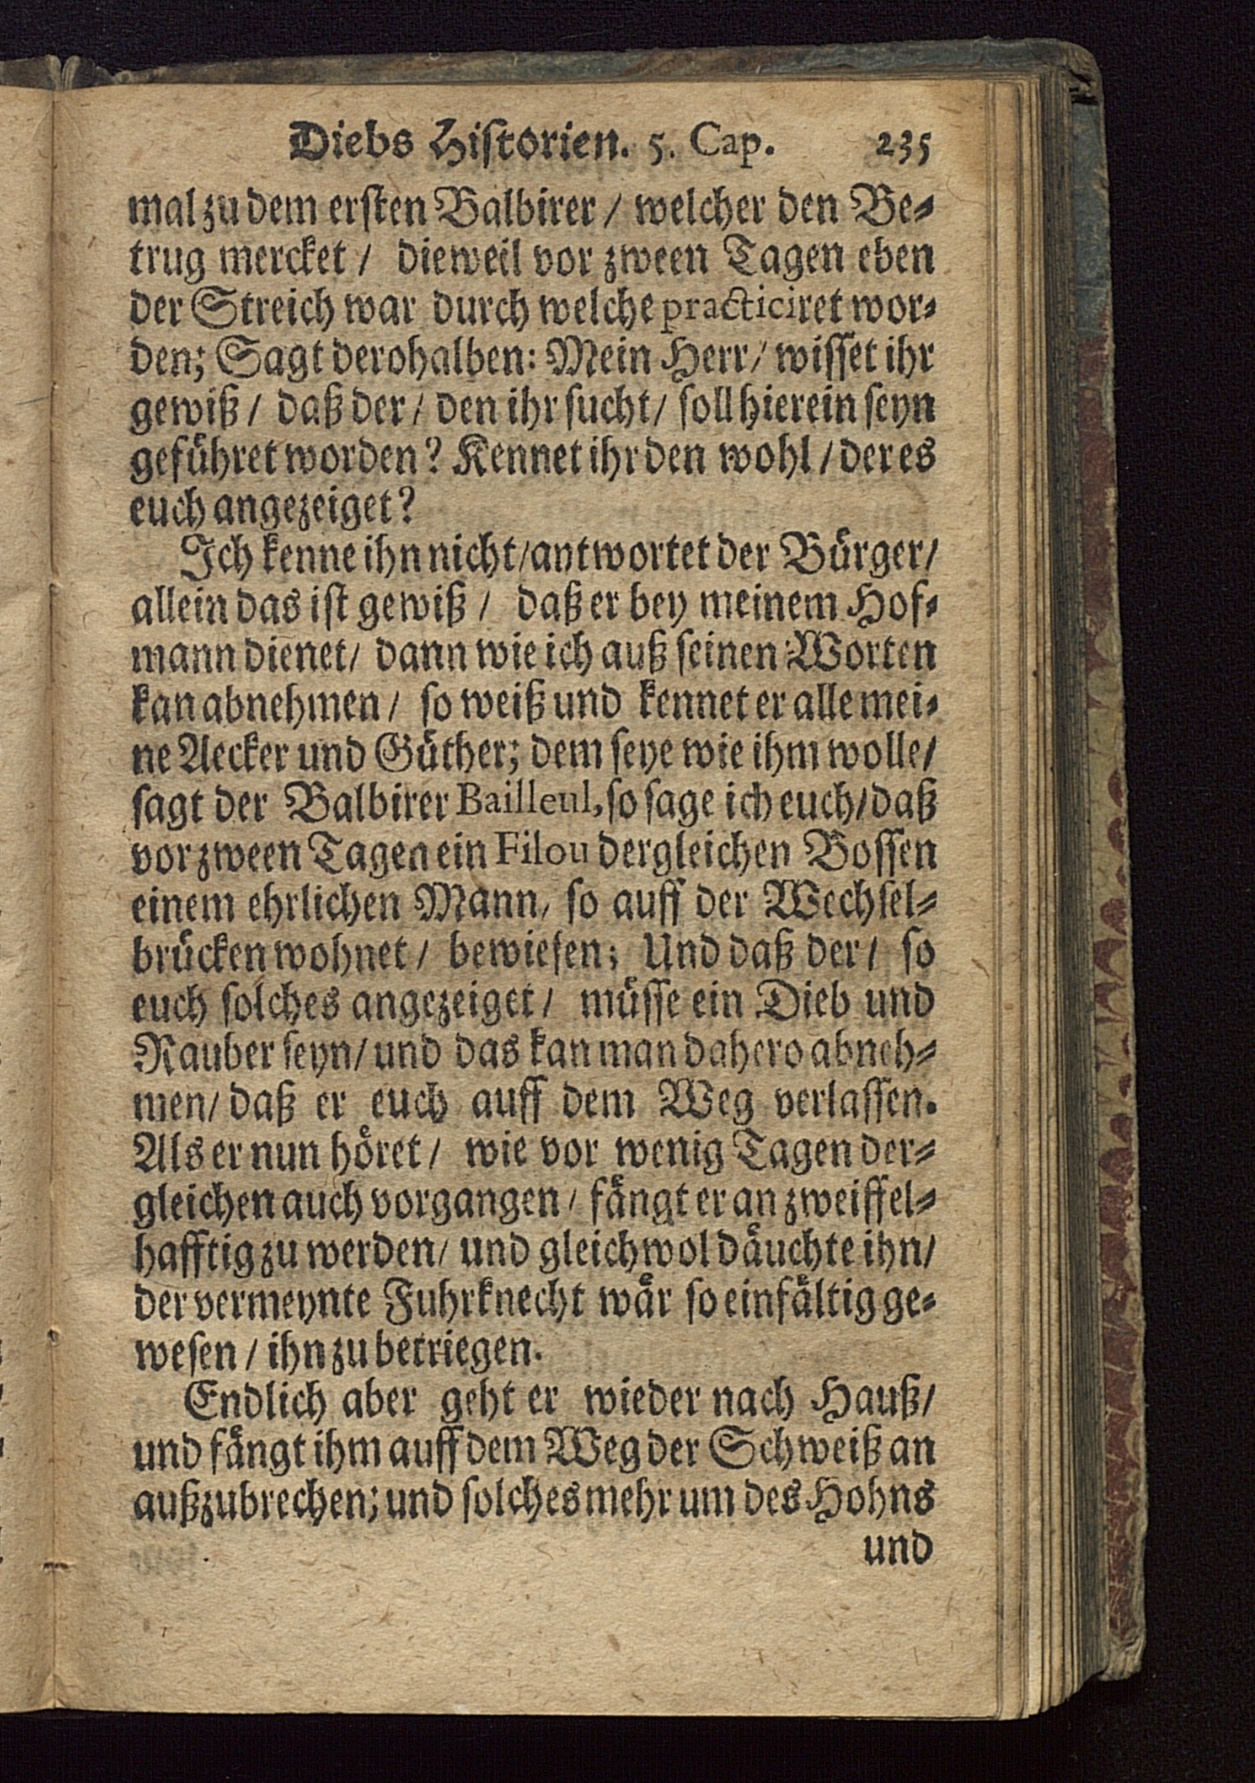 Diebs Historien. 5. Cap. 235
mal zu dem ersten Balbirer / welcher den Be-
trug mercket / dieweil vor zween Tagen eben
der Streich war durch welche practiciret wor-
den; Sagt derohalben: Mein Herr / wisset ihr
gewiß / daß der / den ihr sucht / soll hierein seyn
geführet worden? Kennet ihr den wohl / der es
euch angezeiget?
Ich kenne ihn nicht / antwortet der Bürger /
allein das ist gewiß / daß er bey meinem Hof-
mann dienet / dann wie ich auß seinen Worten
kan abnehmen / so weiß und kennet er alle mei-
ne Aecker und Güther; dem seye wie ihm wolle /
sagt der Balbirer Bailleul, so sage ich euch / daß
vor zween Tagen ein Filou dergleichen Bossen
einem ehrlichen Mann, so auff der Wechsel-
brücken wohnet / bewiesen; Und daß der / so
euch solches angezeiget / müsse ein Dieb und
Rauber seyn / und das kan man dahero abneh-
men / daß er euch auff dem Weg verlassen.
Als er nun höret / wie vor wenig Tagen der-
gleichen auch vorgangen / fängt er an zweiffel-
hafftig zu werden / und gleichwol däuchte ihn /
der vermeynte Fuhrknecht wär so einfältig ge-
wesen / ihn zu betriegen.
Endlich aber geht er wieder nach Hauß /
und fängt ihm auff dem Weg der Schweiß an
außzubrechen; und solches mehr um des Hohns
und